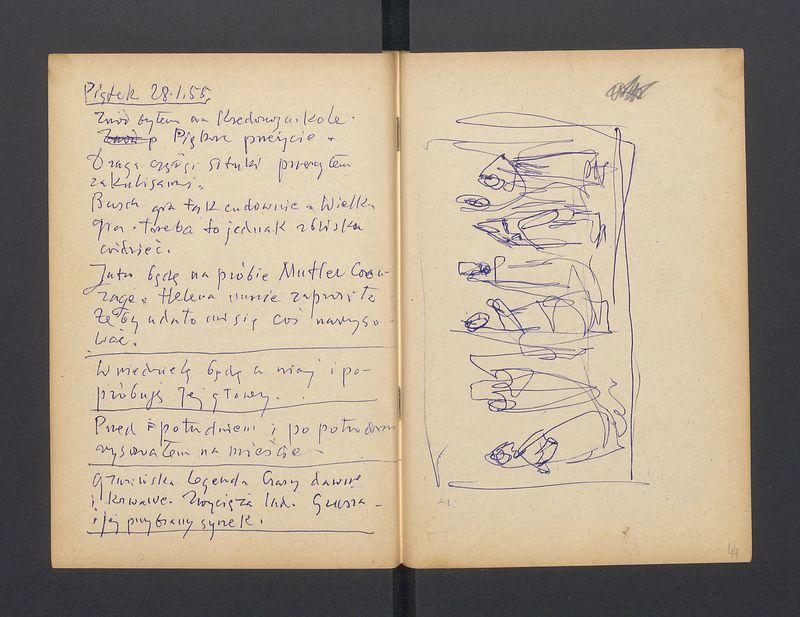 Piątek 28.1.55.
Znów byłem na Kredowym kole.
p Piękne przeżycie.
Drugą część sztuki przesiedziałem
za kulisami.
Busch gra tak cudownie. Wielka
gra. trzeba to jednak z bliska
widzieć.
Jutro będę na próbie Mutter Cou-
rage. Helena mnie zaprosiła
Żeby udało mi się coś naryso-
wać.
W niedzielę będę u niej i po-
próbuję jej głowy.
Przed południem i po południu
rysowałem na mieście
gruzińska legenda Czasy dawne
i krwawe. Zwycięża lud. Grusza -
i jej przybrany synek.
44